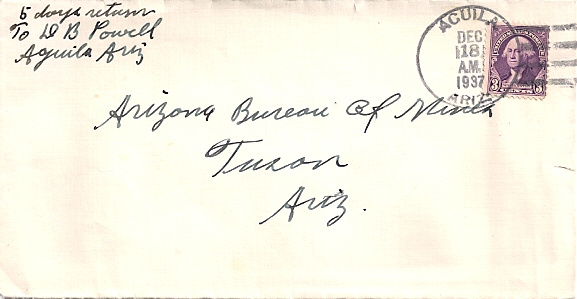 5 days return
To D B Powell
Aguila Ariz
AGUILA
DEC
18
A.M.
1937
ARIZ.
3 CENTS 3
Arizona Bureau Of Mines
Tuson
Ariz.